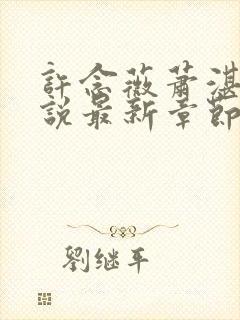 許念薇蕭湛
說最新章節
劉继平